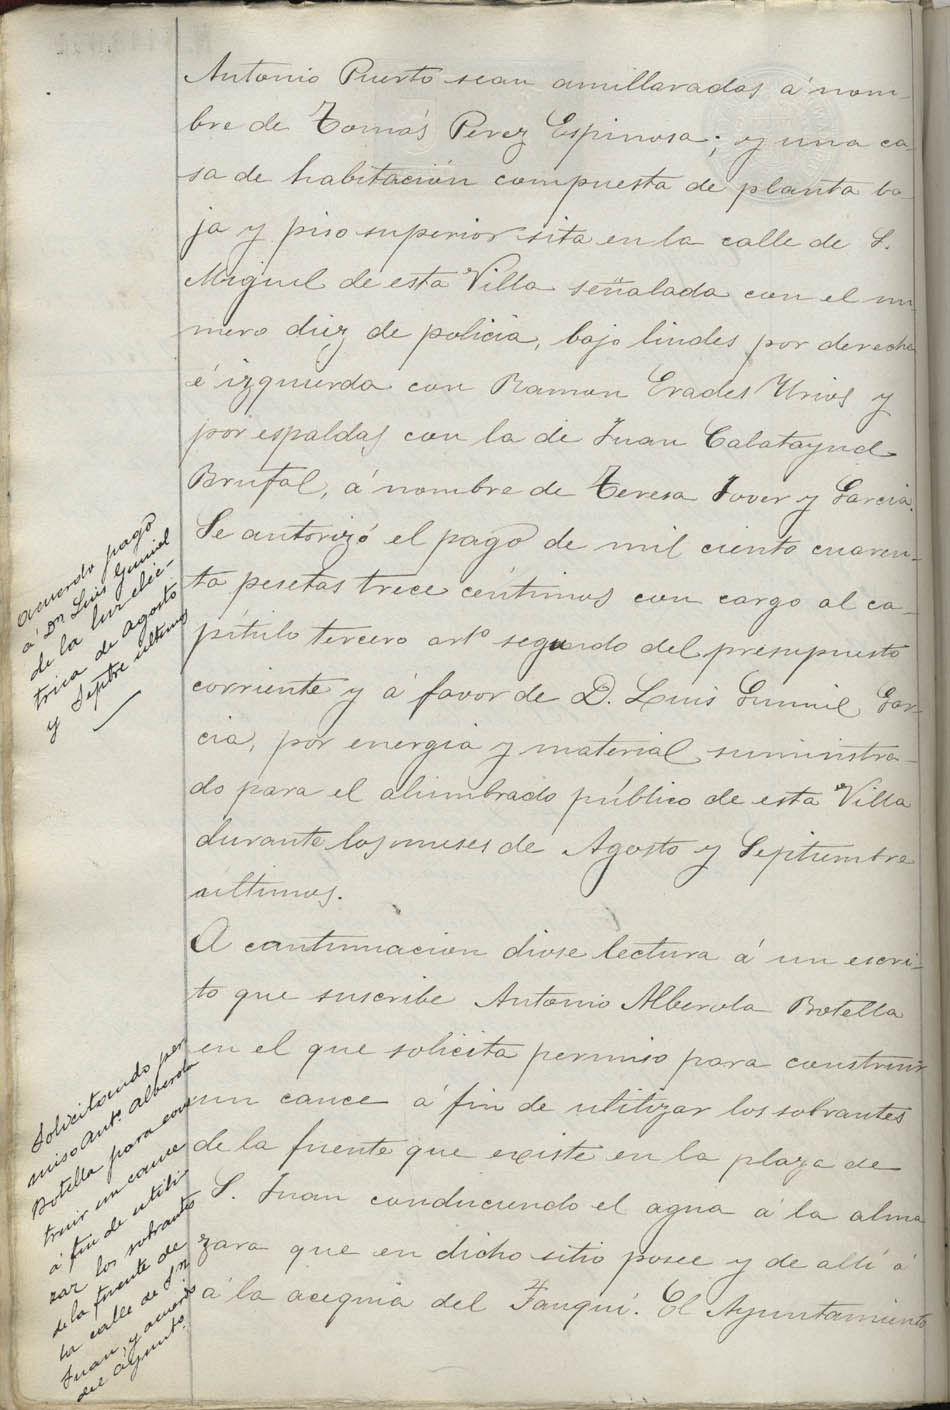 Antonio Puerto sean amillaradas á nom-
bre de Tomás Perez Espinosa; y una ca-
sa de habitación compuesta de planta ba
ja y piso superior sita en la calle de S.
Miguel de esta Villa señalada con el nu
mero diez de policia, bajo lindes por derecha
é izquierda con Ramon Erades Urios y
por espaldas con la de Juan Calatayud
Brufal, á nombre de Teresa Jover y Garcia.
Acuerdo pago
á Dn Luis Gumiel
de la luz eléc-
trica de Agosto
y Septbre ultimos
Se autorizó el pago de mil ciento cuaren-
ta pesetas trece céntimos con cargo al ca-
pítulo tercero arto segundo del presupuesto
corriente y á favor de D. Luis Gumiel Gar-
cia, por energia y material suministra-
do para el alumbrado público de esta Villa
durante los meses de Agosto y Septiembre
ultimos.
Solicitando per
miso Anto Alberola
Botella para cons
truir un cauce
á fin de utili
zar los sobrantes
de la fuente de
la calle de Sn
Juan, y acuerdo
del Ayunto.
A continuacion diose lectura á un escri-
to que suscribe Antonio Alberola Botella
en el que solicita permiso para construir
un cauce á fin de utilizar los sobrantes
de la fuente que existe en la plaza de
S. Juan conduciendo el agua á la alma
zara que en dicho sitio posee y de allí á
á la acequia del Fauquí. El Ayuntamiento